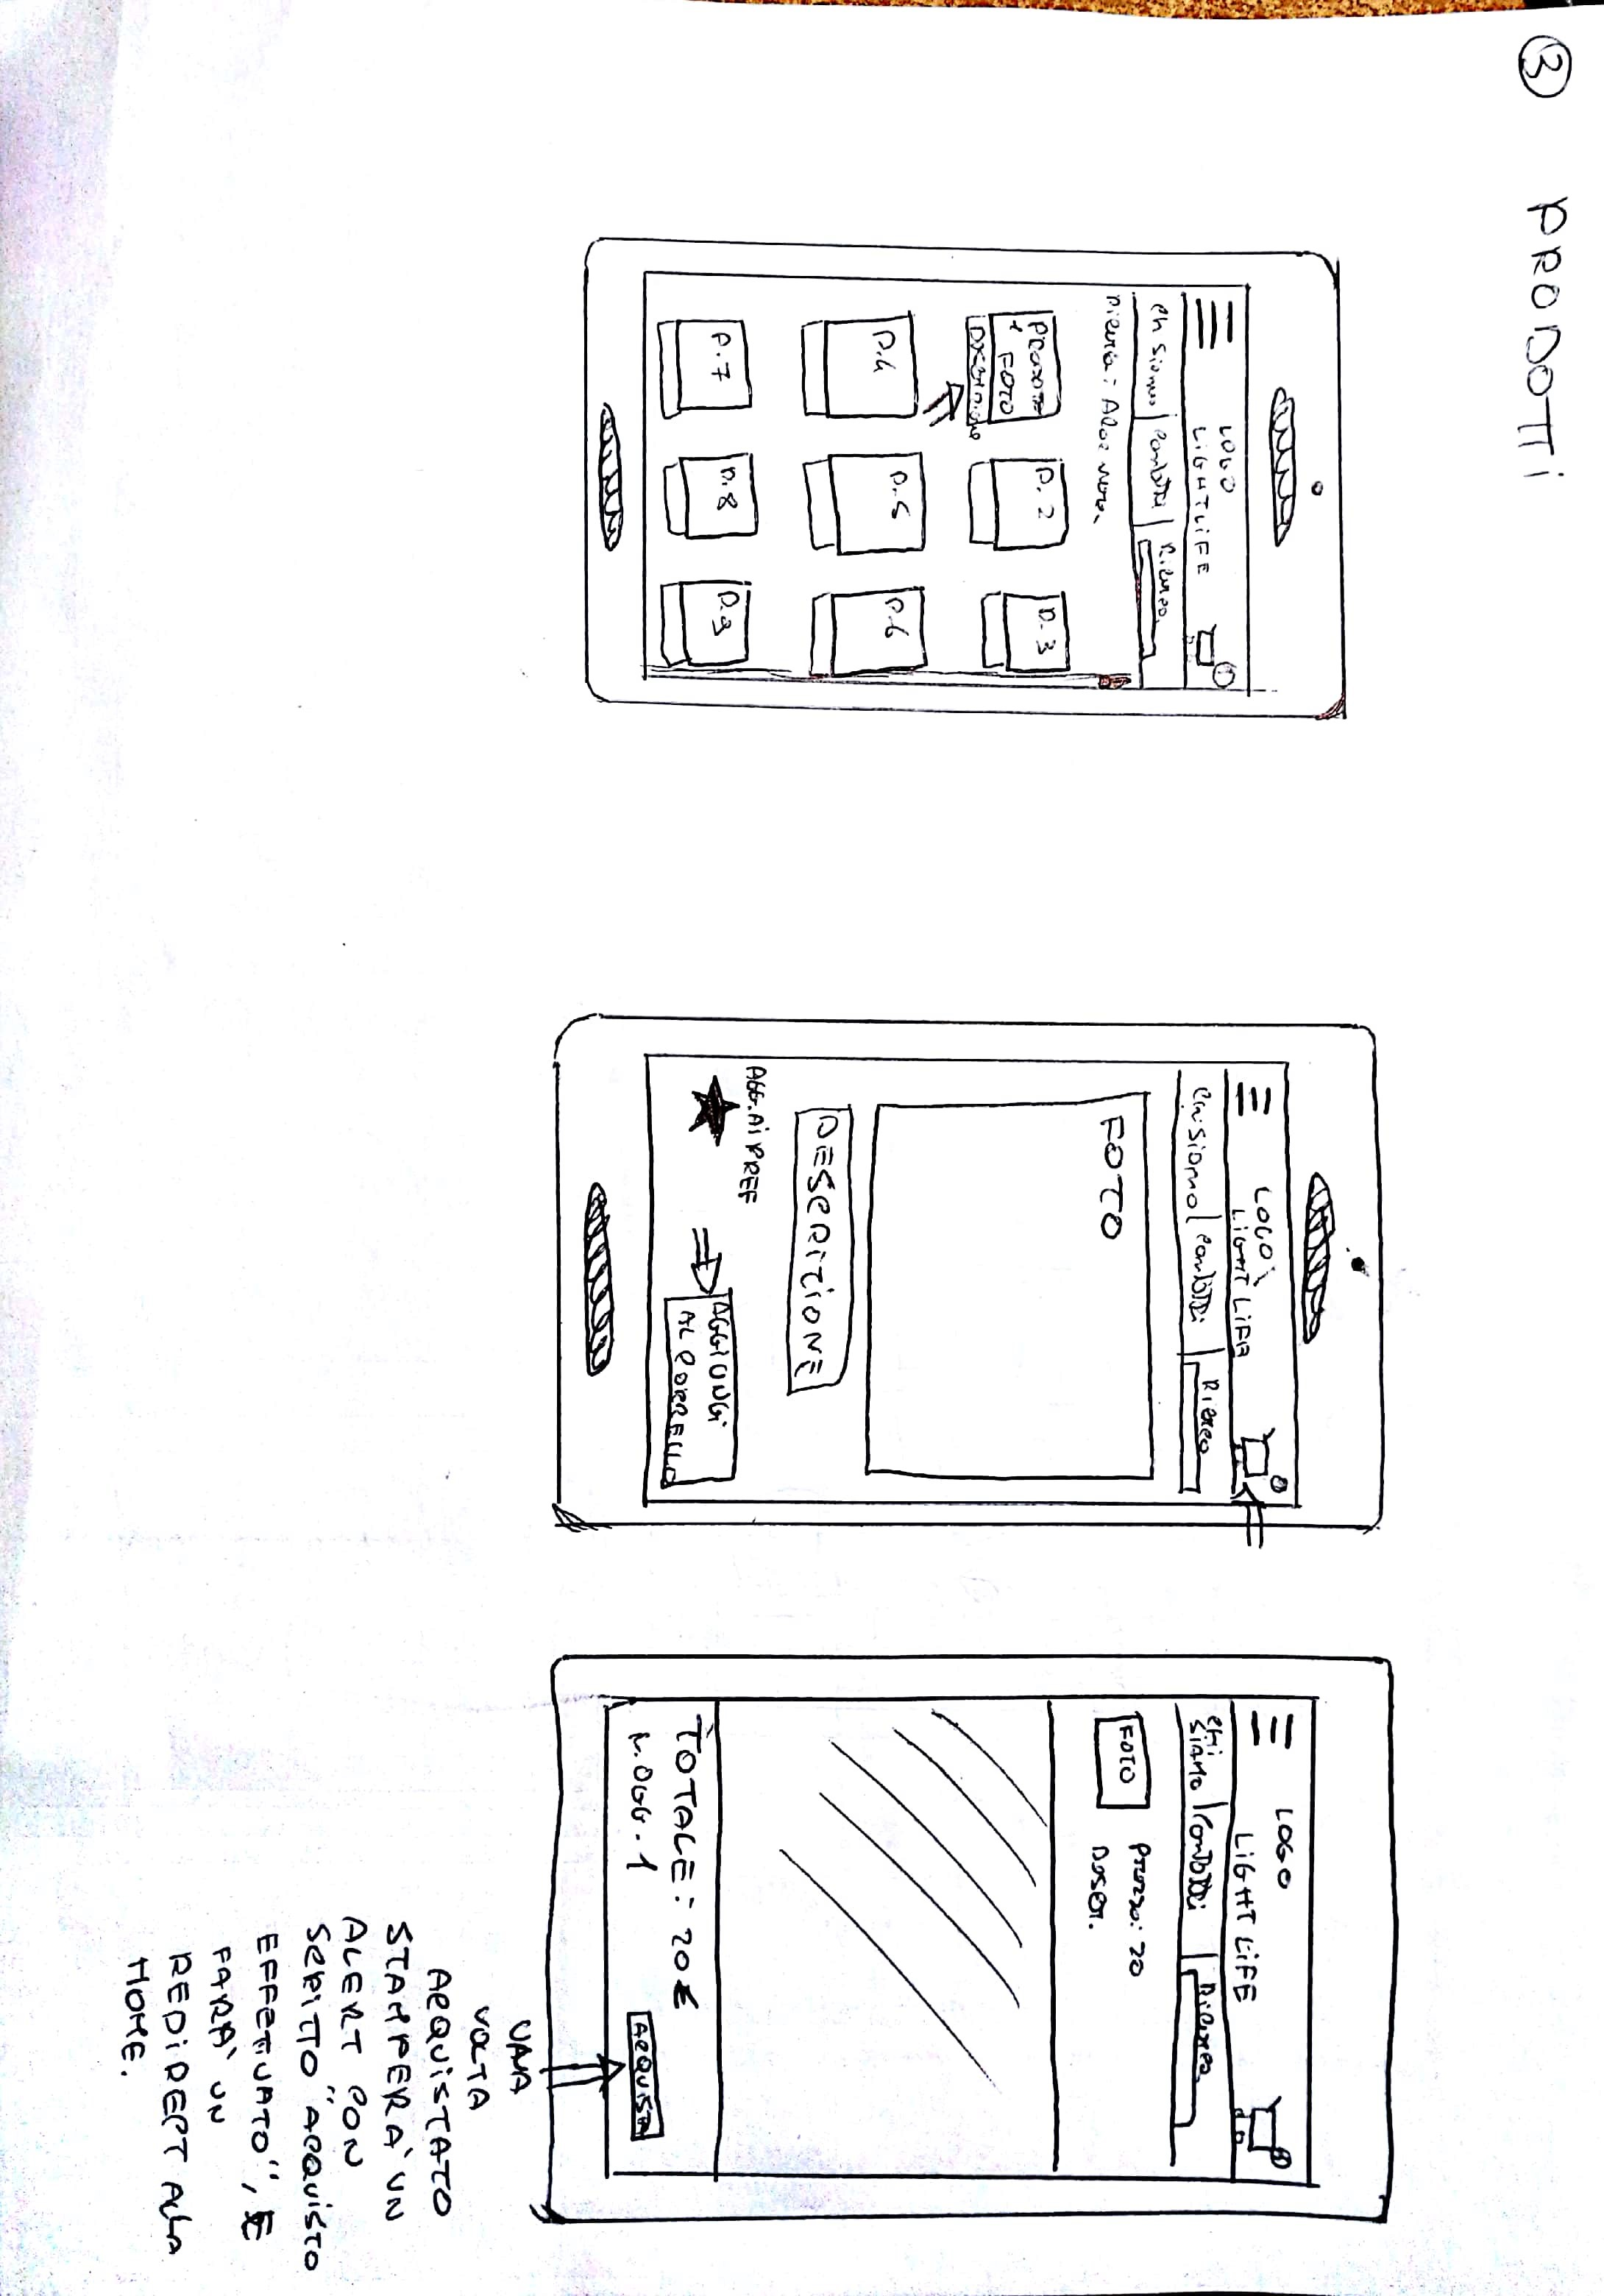 3 PRODOTTI
LOGO
LIGHT LIFE
Chi Siamo | Contatti | Ricerca
Ricerca: Aloe vera.
PRODOTTO
+ FOTO
DESCRIZIONE
P. 2
P. 3
P.4
P.5
P.6
P.7
P.8
P.9
LOGO
LIGHT LIFE
Chi Siamo | Contatti | Ricerca
FOTO
DESCRIZIONE
AGG. AI PREF
AGGIUNGI
AL CARRELLO
LOGO
LIGHT LIFE
Chi
SIAMO | Contatti | Ricerca
FOTO
Prezzo: 20
Descr.
TOTALE: 20€
N. OGG. 1
ACQUISTA
UNA
VOLTA
ACQUISTATO
STAMPERÀ UN
ALERT CON
SCRITTO "ACQUISTO
EFFETTUATO", E
FARÀ UN
REDIRECT ALLA
HOME.